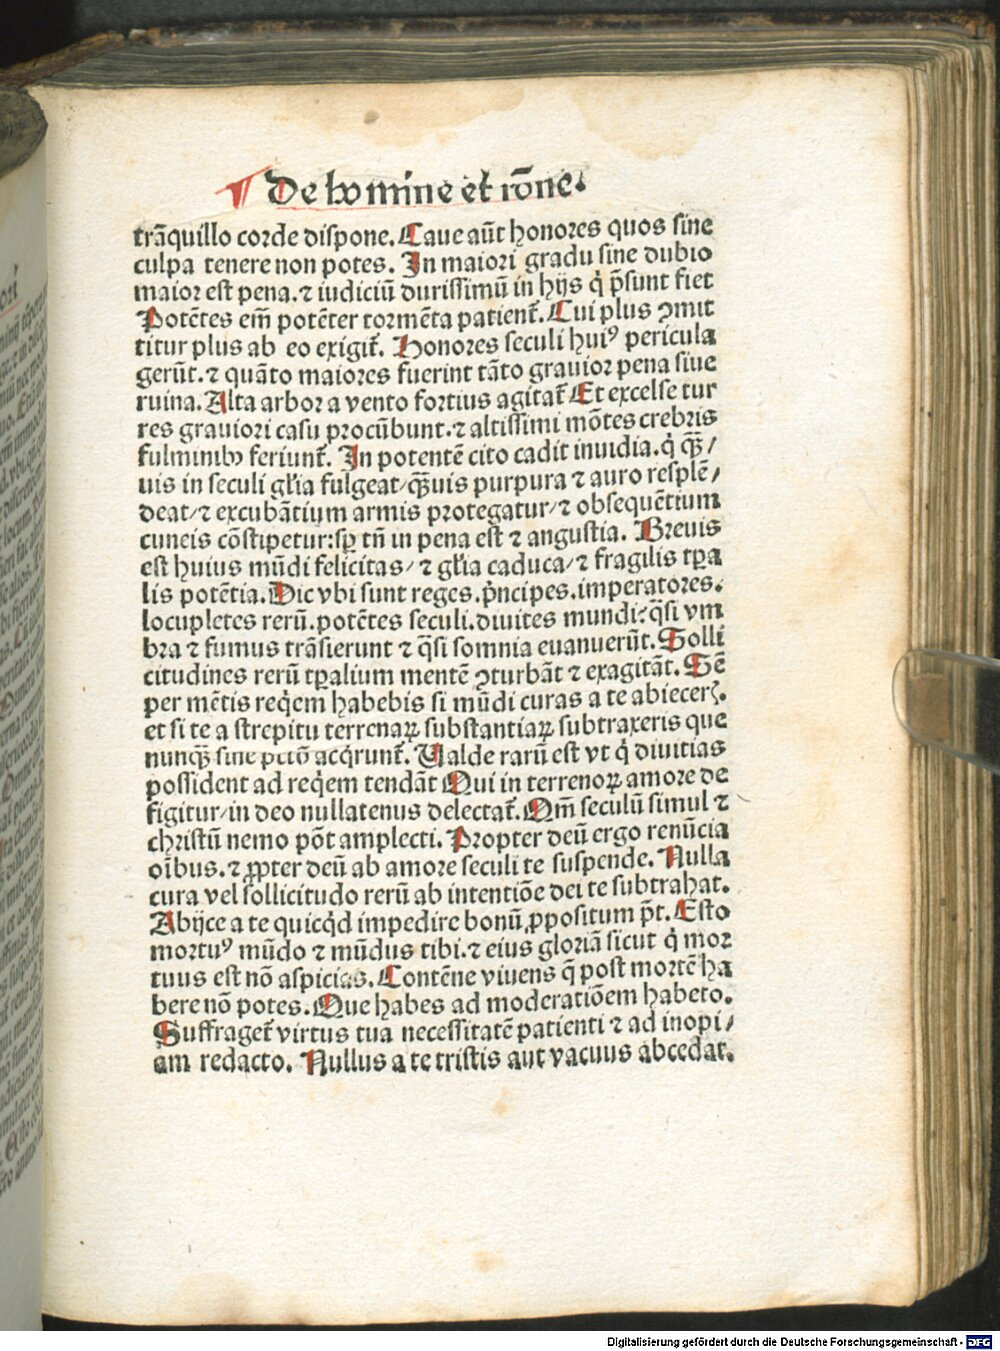 ¶ De homine et rōne.
trāquillo corde dispone. Caue aūt honores quos sine
culpa tenere non potes. In maiori gradu sine dubio
maior est pena. ⁊ iudiciū durissimū in hijs q̇ p̄sunt fiet
Potētes em̄ potēter tormēta patient̄. Cui plus ꝯmit
titur plus ab eo exigit̄. Honores seculi huiꝰ pericula
gerūt. ⁊ quāto maiores fuerint tāto grauior pena siue
ruina. Alta arbor a vento fortius agitat̄ Et excelse tur
res grauiori casu procūbunt. ⁊ altissimi mōtes crebris
fulminibꝫ feriunt̄. In potentē cito cadit inuidia. q̇ qꝫ̄/
uis in seculi gl̄ia fulgeat/ qꝫ̄uis purpura ⁊ auro resplē/
deat/ ⁊ excubātium armis protegatur/ ⁊ obsequētium
cuneis cōstipetur: sꝑ tn̄ in pena est ⁊ angustia. Breuis
est huius mūdi felicitas/ ⁊ gl̄ia caduca/ ⁊ fragilis tꝑa
lis potētia. Dic vbi sunt reges. p̄ncipes. imperatores.
locupletes rerū. potētes seculi. diuites mundi: q̄si vm
bra ⁊ fumus trāsierunt ⁊ q̄si somnia euanuerūt. Solli
citudines rerū tꝑalium mentē ꝯturbāt ⁊ exagitāt. Sē
per mētis req̇em habebis si mūdi curas a te abiecer̄.
et si te a strepitu terrenaꝝ substantiaꝝ subtraxeris que
nunqꝫ̄ sine pctō acq̇runt̄. Ualde rarū est vt q̇ diuitias
possident ad req̇em tendāt Qui in terrenoꝝ amore de
figitur/ in deo nullatenus delectat̄. Om̄ seculū simul ⁊
christū nemo pōt amplecti. Propter deū ergo renūcia
oībus. ⁊ ꝓpter deū ab amore seculi te suspende. Nulla
cura vel sollicitudo rerū ab intentiōe dei te subtrahat.
Abijce a te quicq̇d impedire bonū ꝓpositum p̄t. Esto
mortuꝰ mūdo ⁊ mūdus tibi. ⁊ eius gloriā sicut q̇ mor
tuus est nō aspicias. Contēne viuens q̄ post mortē ha
bere nō potes. Que habes ad moderatiōem habeto.
Suffraget̄ virtus tua necessitatē patienti ⁊ ad inopi/
am redacto. Nullus a te tristis aut vacuus abcedat.
Digitalisierung gefördert durch die Deutsche Forschungsgemeinschaft - DFG